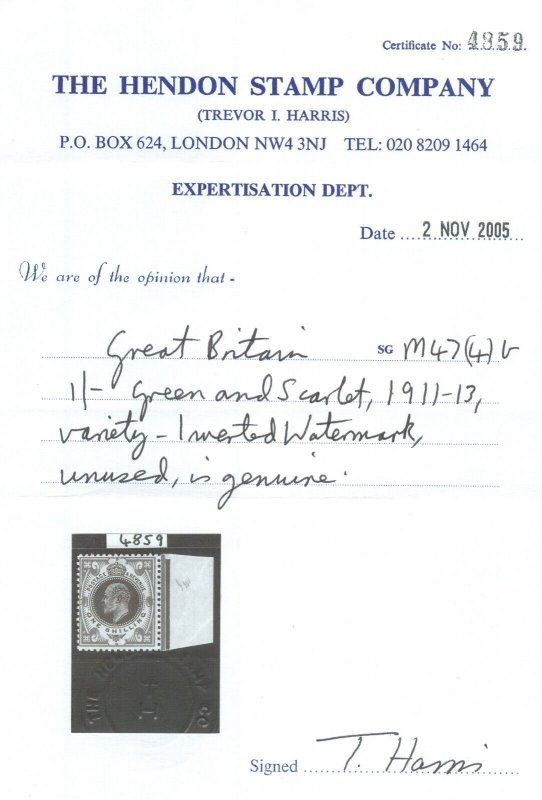 Certificate No: 4859.
THE HENDON STAMP COMPANY
(TREVOR I. HARRIS)
P.O. BOX 624, LONDON NW4 3NJ TEL: 020 8209 1464
EXPERTISATION DEPT.
Date 2 NOV 2005
We are of the opinion that -
Great Britain SG M47(4)b
1/- Green and Scarlet, 1911-13,
variety - Inverted Watermark,
unused, is genuine.
4859
POSTAGE & REVENUE
ONE SHILLING
THE HENDON STAMP CO
H
Signed T. Harris